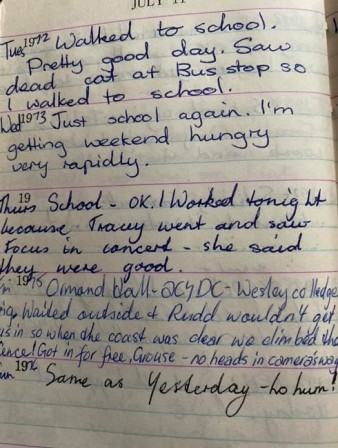 JULY 11
Tues 1972 Walked to school.
Pretty good day. Saw
dead cat at Bus stop so
I walked to school.
Wed 1973 Just school again. I'm
getting weekend hungry
very rapidly.
Thurs 19 School - OK. I Worked tonight
because Tracey went and saw
Focus in concert - she said
they were good.
Fri 1975 Ormond Hall - ACϟDC - Wesley college
Waited outside & Rudd wouldn't get
us in so when the coast was clear we climbed the
fence! Got in for free, Grouse - no heads in camera's way
Sun 1976 Same as Yesterday - ho hum!